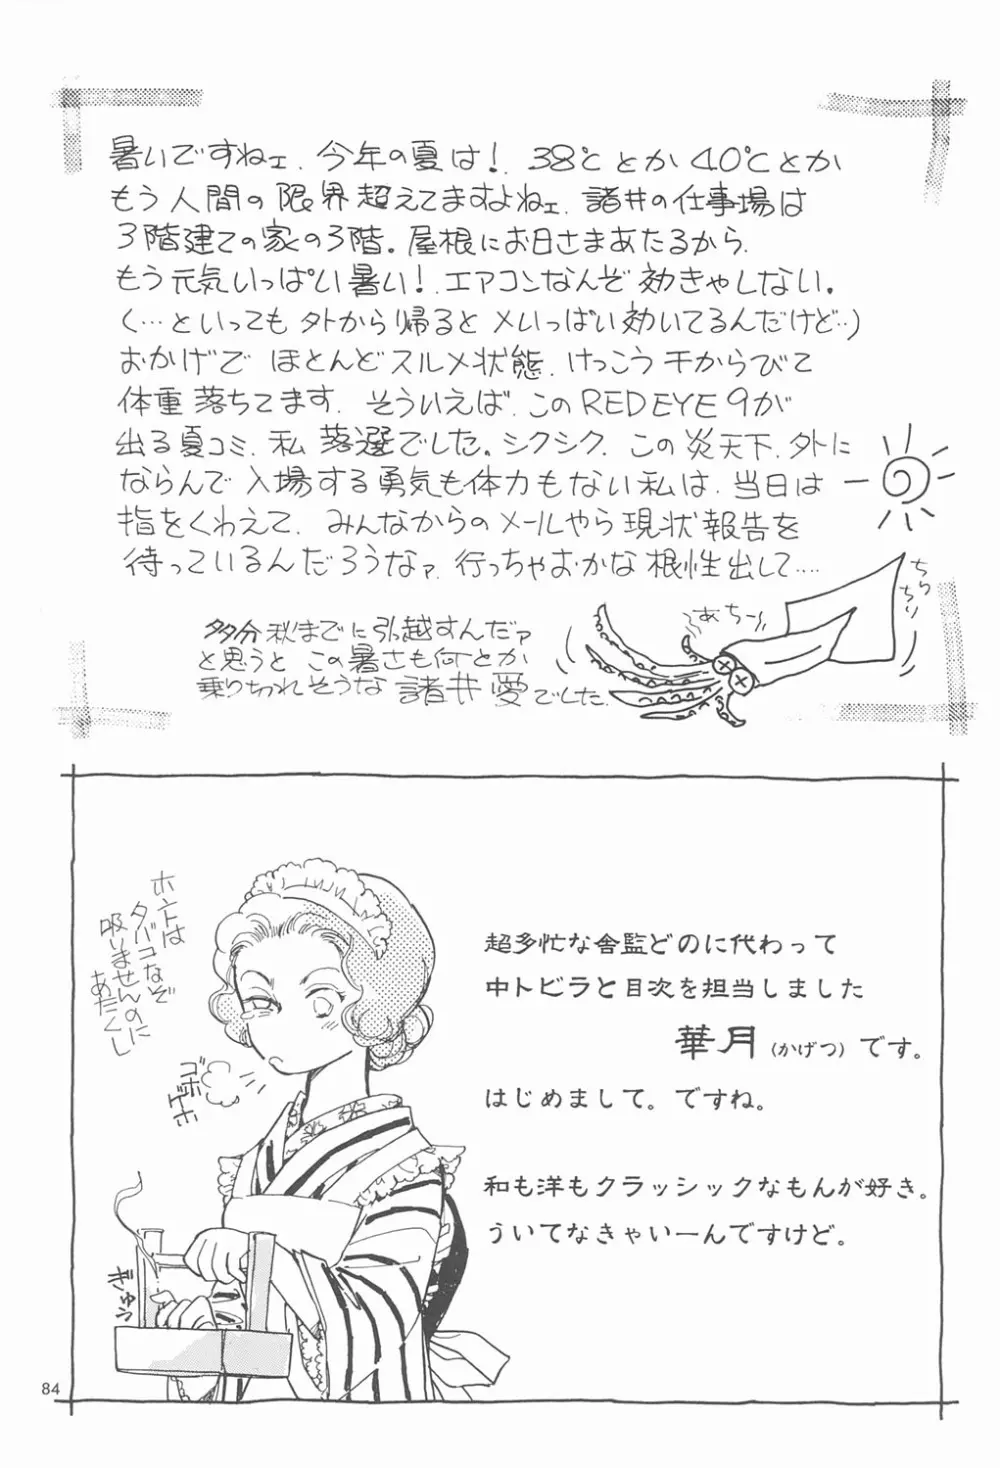 暑いですねェ、今年の夏は！ 38℃とか40℃とか
もう人間の限界超えてますよねェ、諸井の仕事場は
3階建ての家の3階。屋根にお日さまあたるから、
もう元気いっぱい暑い！エアコンなんぞ効きゃしない。
（…といっても外から帰るとメいっぱい効いてるんだけど…）
おかげでほとんどスルメ状態、けっこう干からびて
体重落ちてます、そういえば、このREDEYE9が
出る夏コミ、私落選でした。シクシク、この炎天下、外に
ならんで入場する勇気も体力もない私は、当日は
指をくわえて、みんなからのメールやら現状報告を
待っているんだろうなァ、行っちゃおかな根性出して……
ちりちり
あちーぃ
多分秋までに引越すんだァ
と思うとこの暑さも何とか
乗りきれそうな諸井愛でした。
ホントは
タバコなぞ
吸いませんのに
あたくし
ゴホ
ゲホ
ぎゅう
超多忙な舎監どのに代わって
中トビラと目次を担当しました
華月（かげつ）です。
はじめまして。ですね。
和も洋もクラッシックなもんが好き。
ういてなきゃいーんですけど。
84